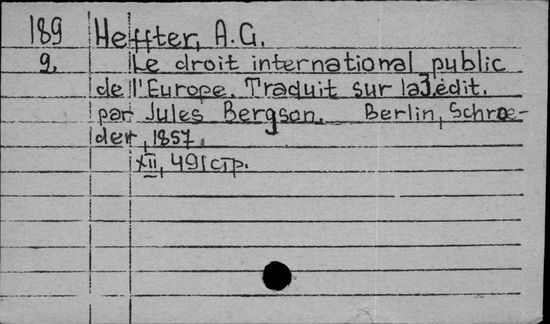 189 Heffter, A.G.
9. Le droit international public
de l'Europe. Traduit sur la 3 édit.
par Jules Bergson. Berlin, Schroe-
der, 1857.
XII, 491 стр.